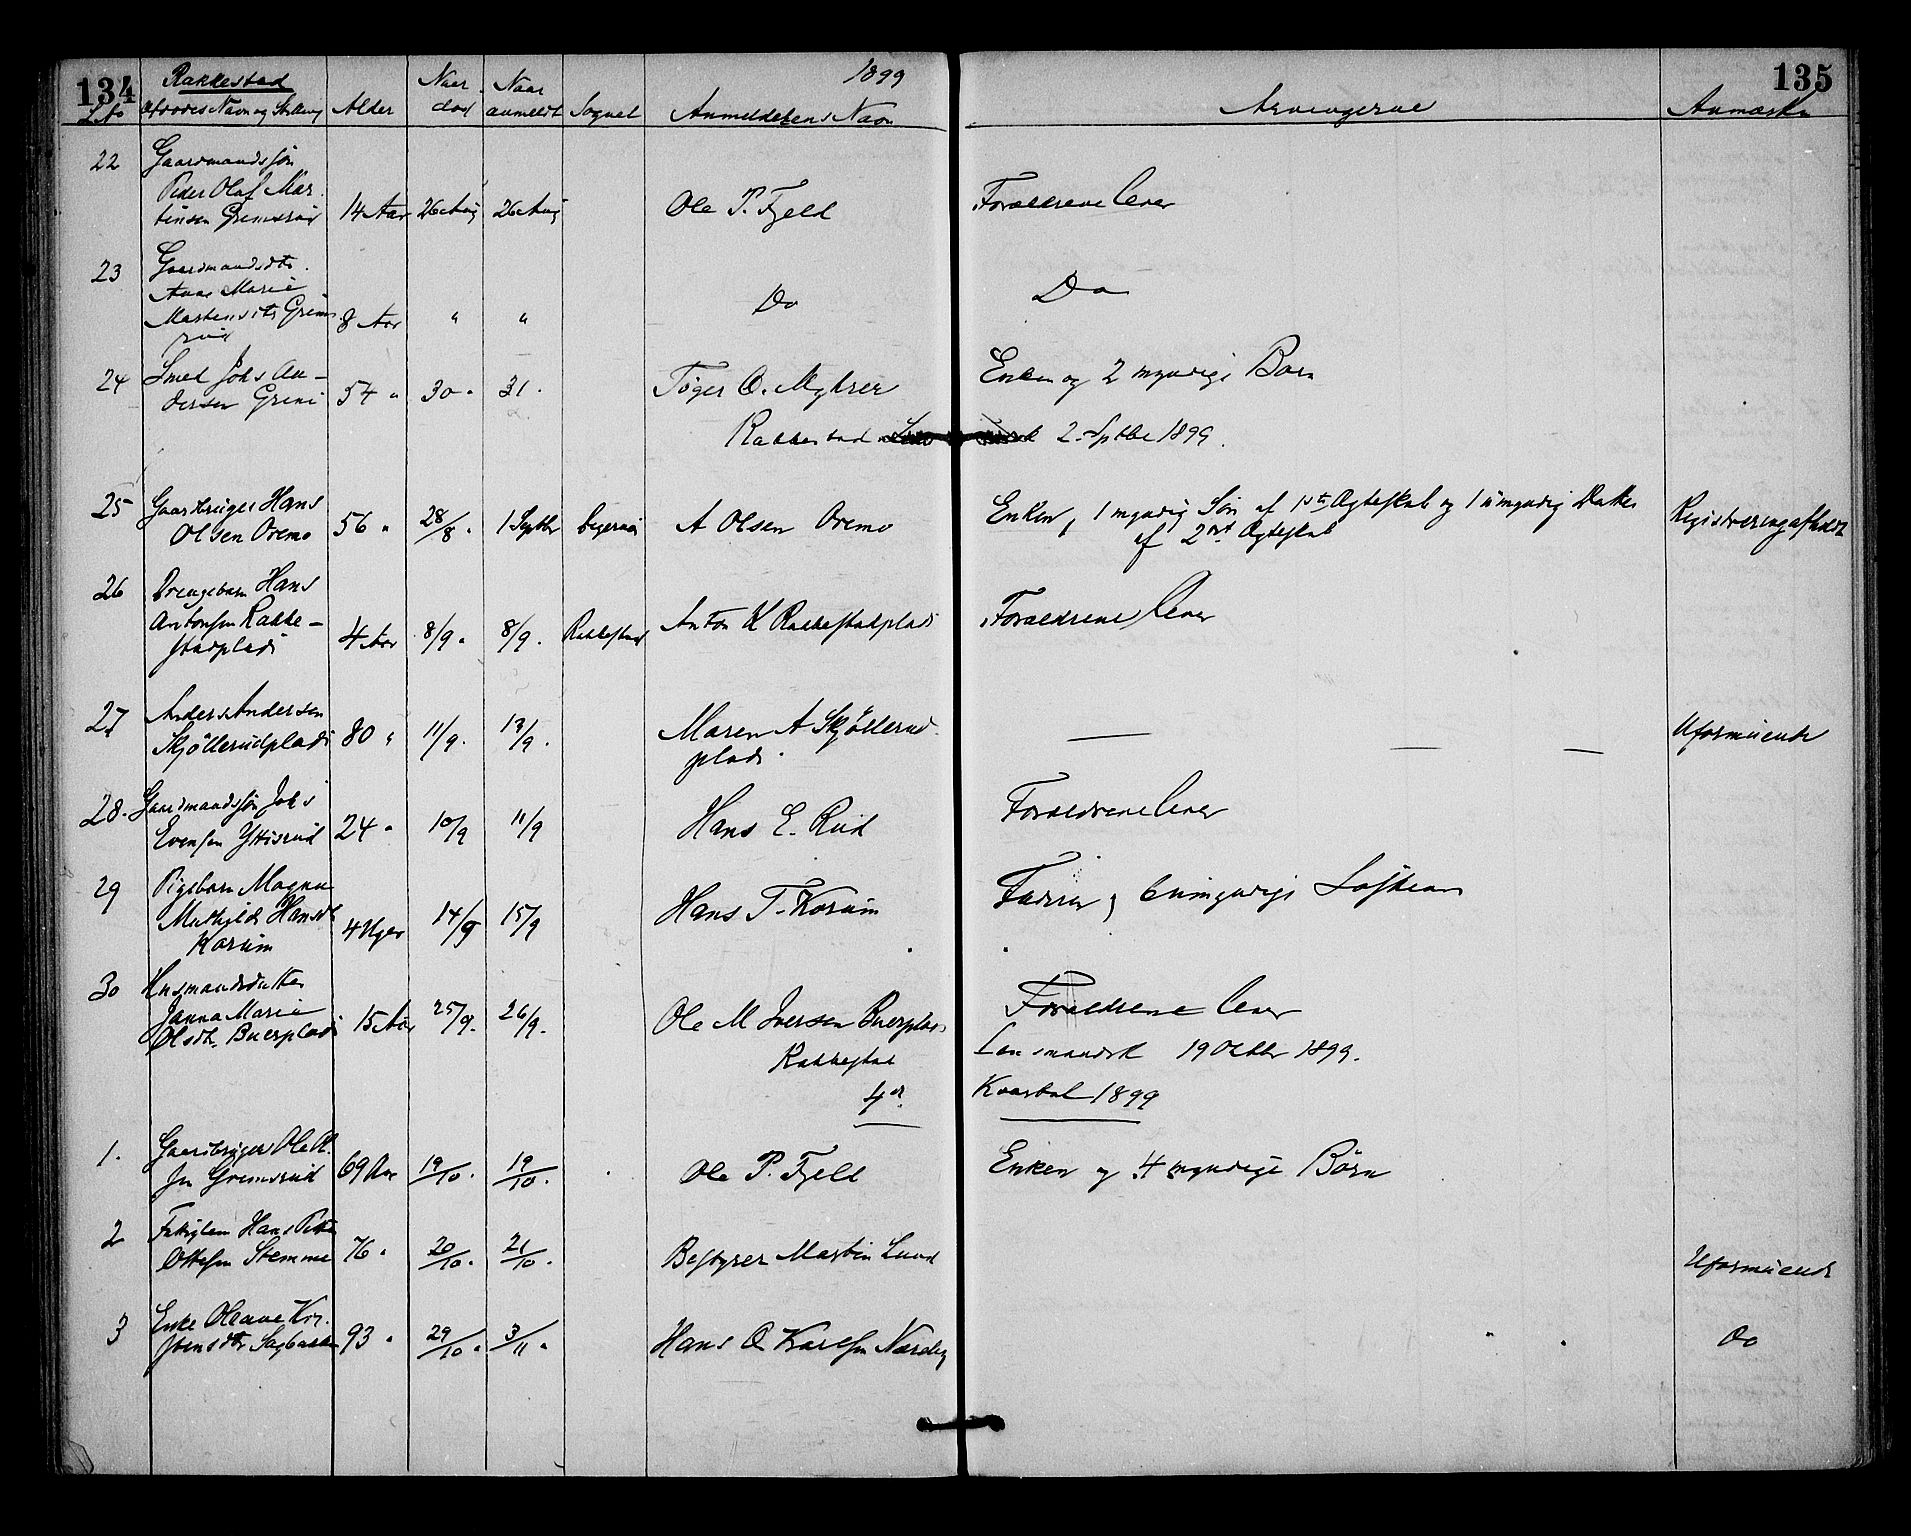 134 Rakkestad 1899 135
LNo Afdødes Navn og Stilling Alder Naar død Naar anmeldt Sognet Anmelderens Navn Arvingerne Anmærkn
22 Gaardmandssøn
Peder Olaf Mar-
tinsen Grimsrud 14 Aar 26 Aug 26 Aug Ole P. Fjeld Forældrene lever
23 Gaardmandsdtr.
Anne Marie
Martinsdtr Grims
rud 8 Aar " " Do Do
24 Smed Johs An-
dersen Greni 54 " 30 " 31. Tøger O. Mythrer Enken og 2 myndige Børn
Rakkestad 2 Septbr 1899.
25 Gaardbruger Hans
Olsen Oremo 56 " 28/8. 1 Septbr Degernæs A Olsen Oremo Enken, 1 myndig Søn af 1ste Ægteskab og 1 umyndig Datter
af 2det Ægteskab Registreringsafhørt
26 Drengebarn Hans
Antonsen Rakke-
stadplads 4 Aar 8/9 " 8/9. Rakkestad Anton K Rakkestadplads Forældrene lever
27 Anders Andersen
Skjøllerudplads 80 " 11/9. 13/9. Maren A Skjøllerud
plads. — — — Uformuende
28. Gaardmandssøn Johs
Evensen Ytterud 24 " 10/9 11/9 Hans E. Rud Forældrene lever
29 Pigebarn Magna
Mathilde Hansdt
Korum 4 Uger 14/9 15/9 Hans T. Korum Faderen, 6 umyndige Søskende
30 Husmandsdatter
Janna Marie
Olsdt. Buerplads 15 Aar 25/9. 26/9. Ole M Iversen Buerplads Forældrene lever
Rakkestad Lensmandsk 19 Oktbr 1899.
4de Kvartal 1899
1. Gaardbruger Ole Ol.
sen Grimsrud 69 Aar 19/10. 19/10. Ole P. Fjeld Enken og 4 myndige Børn
2 Fattiglem Hans Petter
Ottesen Stemme 76 " 20/10. 21/10. Bestyrer Martin Lund Uformuende
3 Enke Oleane Kri-
stensdtr Sagbakken 93 " 29/10 " 3/11 " Hans O Karlsen Nærby Do